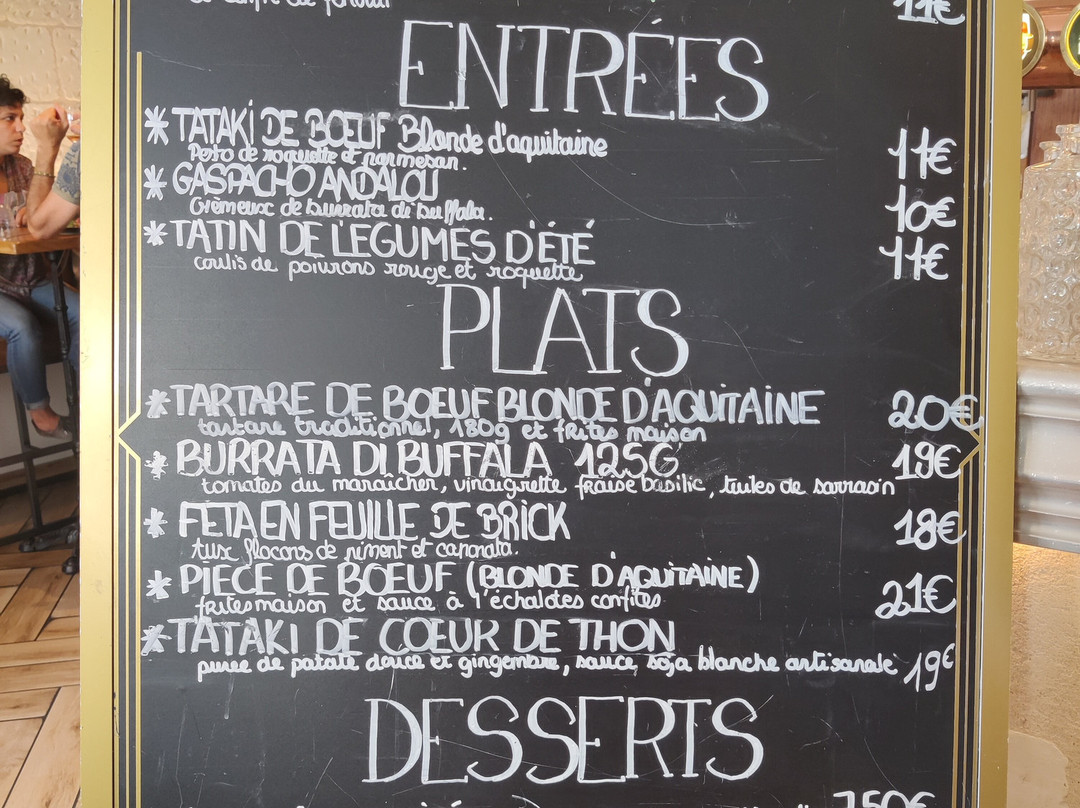 11€
ENTRÉES
* TATAKI DE BOEUF Blonde d'aquitaine 11€
Pesto de roquette et parmesan.
* GASPACHO ANDALOU 10€
Crèmeux de burrata di Buffala.
* TATIN DE LEGUMES D'ÉTÉ 11€
coulis de poivrons rouge et roquette
PLATS
* TARTARE DE BOEUF BLONDE D'AQUITAINE 20€
tartare traditionnel, 180g et frites maison
* BURRATA DI BUFFALA 125G 19€
tomates du maraicher, vinaigrette fraise basilic, tuiles de sarrasin
* FETA EN FEUILLE DE BRICK 18€
aux flocons de piment et caponata.
* PIECE DE BOEUF (BLONDE D'AQUITAINE) 21€
frites maison et sauce à l'échalotes confites
* TATAKI DE COEUR DE THON
puree de patate douce et gingembre, sauce soja blanche artisanale 19€
DESSERTS
7.50€